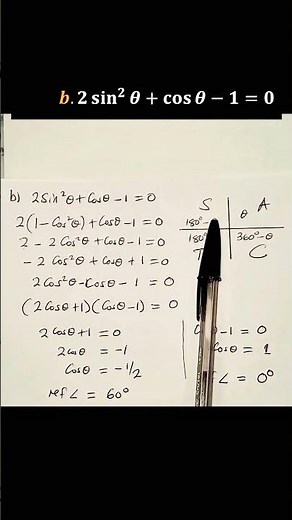 b. 2 sin² θ + cos θ − 1 = 0
b) 2Sin²θ + Cosθ − 1 = 0
2(1 − Cos²θ) + Cosθ − 1 = 0
2 − 2Cos²θ + Cosθ − 1 = 0
− 2Cos²θ + Cosθ + 1 = 0
2Cos²θ − 1Cosθ − 1 = 0
(2Cosθ + 1)(Cosθ − 1) = 0
2Cosθ + 1 = 0
2Cosθ = −1
Cosθ = −1/2
ref ∠ = 60°
S A
180° − θ
180° 360° − θ
T C
− 1 = 0
Cosθ = 1
∠ = 0°